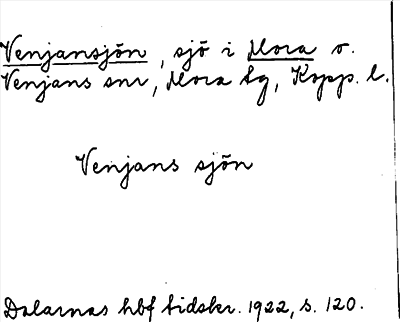 Venjansjön, sjö i Mora o.
Venjans snr, Mora tg, Kopp. l.
Venjans sjön
Dalarnas hbf tidskr. 1922, s. 120.